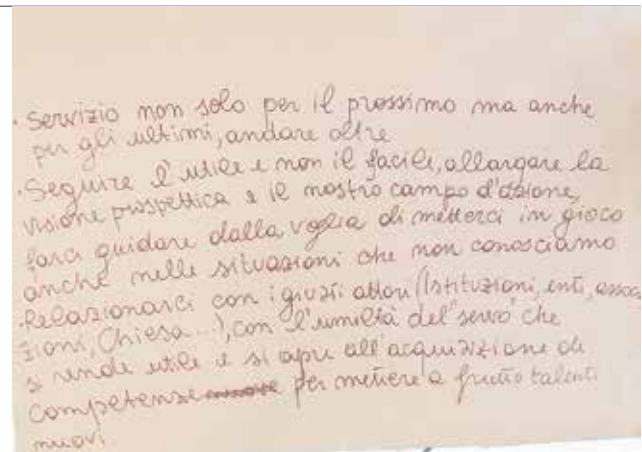 · Servizio non solo per il prossimo ma anche
per gli ultimi, andare oltre
· Seguire l'utile e non il facile, allargare la
visione prospettica e il nostro campo d'azione,
farci guidare dalla voglia di metterci in gioco
anche nelle situazioni che non conosciamo
· Relazionarci con i giusti attori (Istituzioni, enti, associa
zioni, Chiesa...), con l'umiltà del "servo" che
si rende utile e si apre all'acquisizione di
competenze per mettere a frutto talenti
nuovi